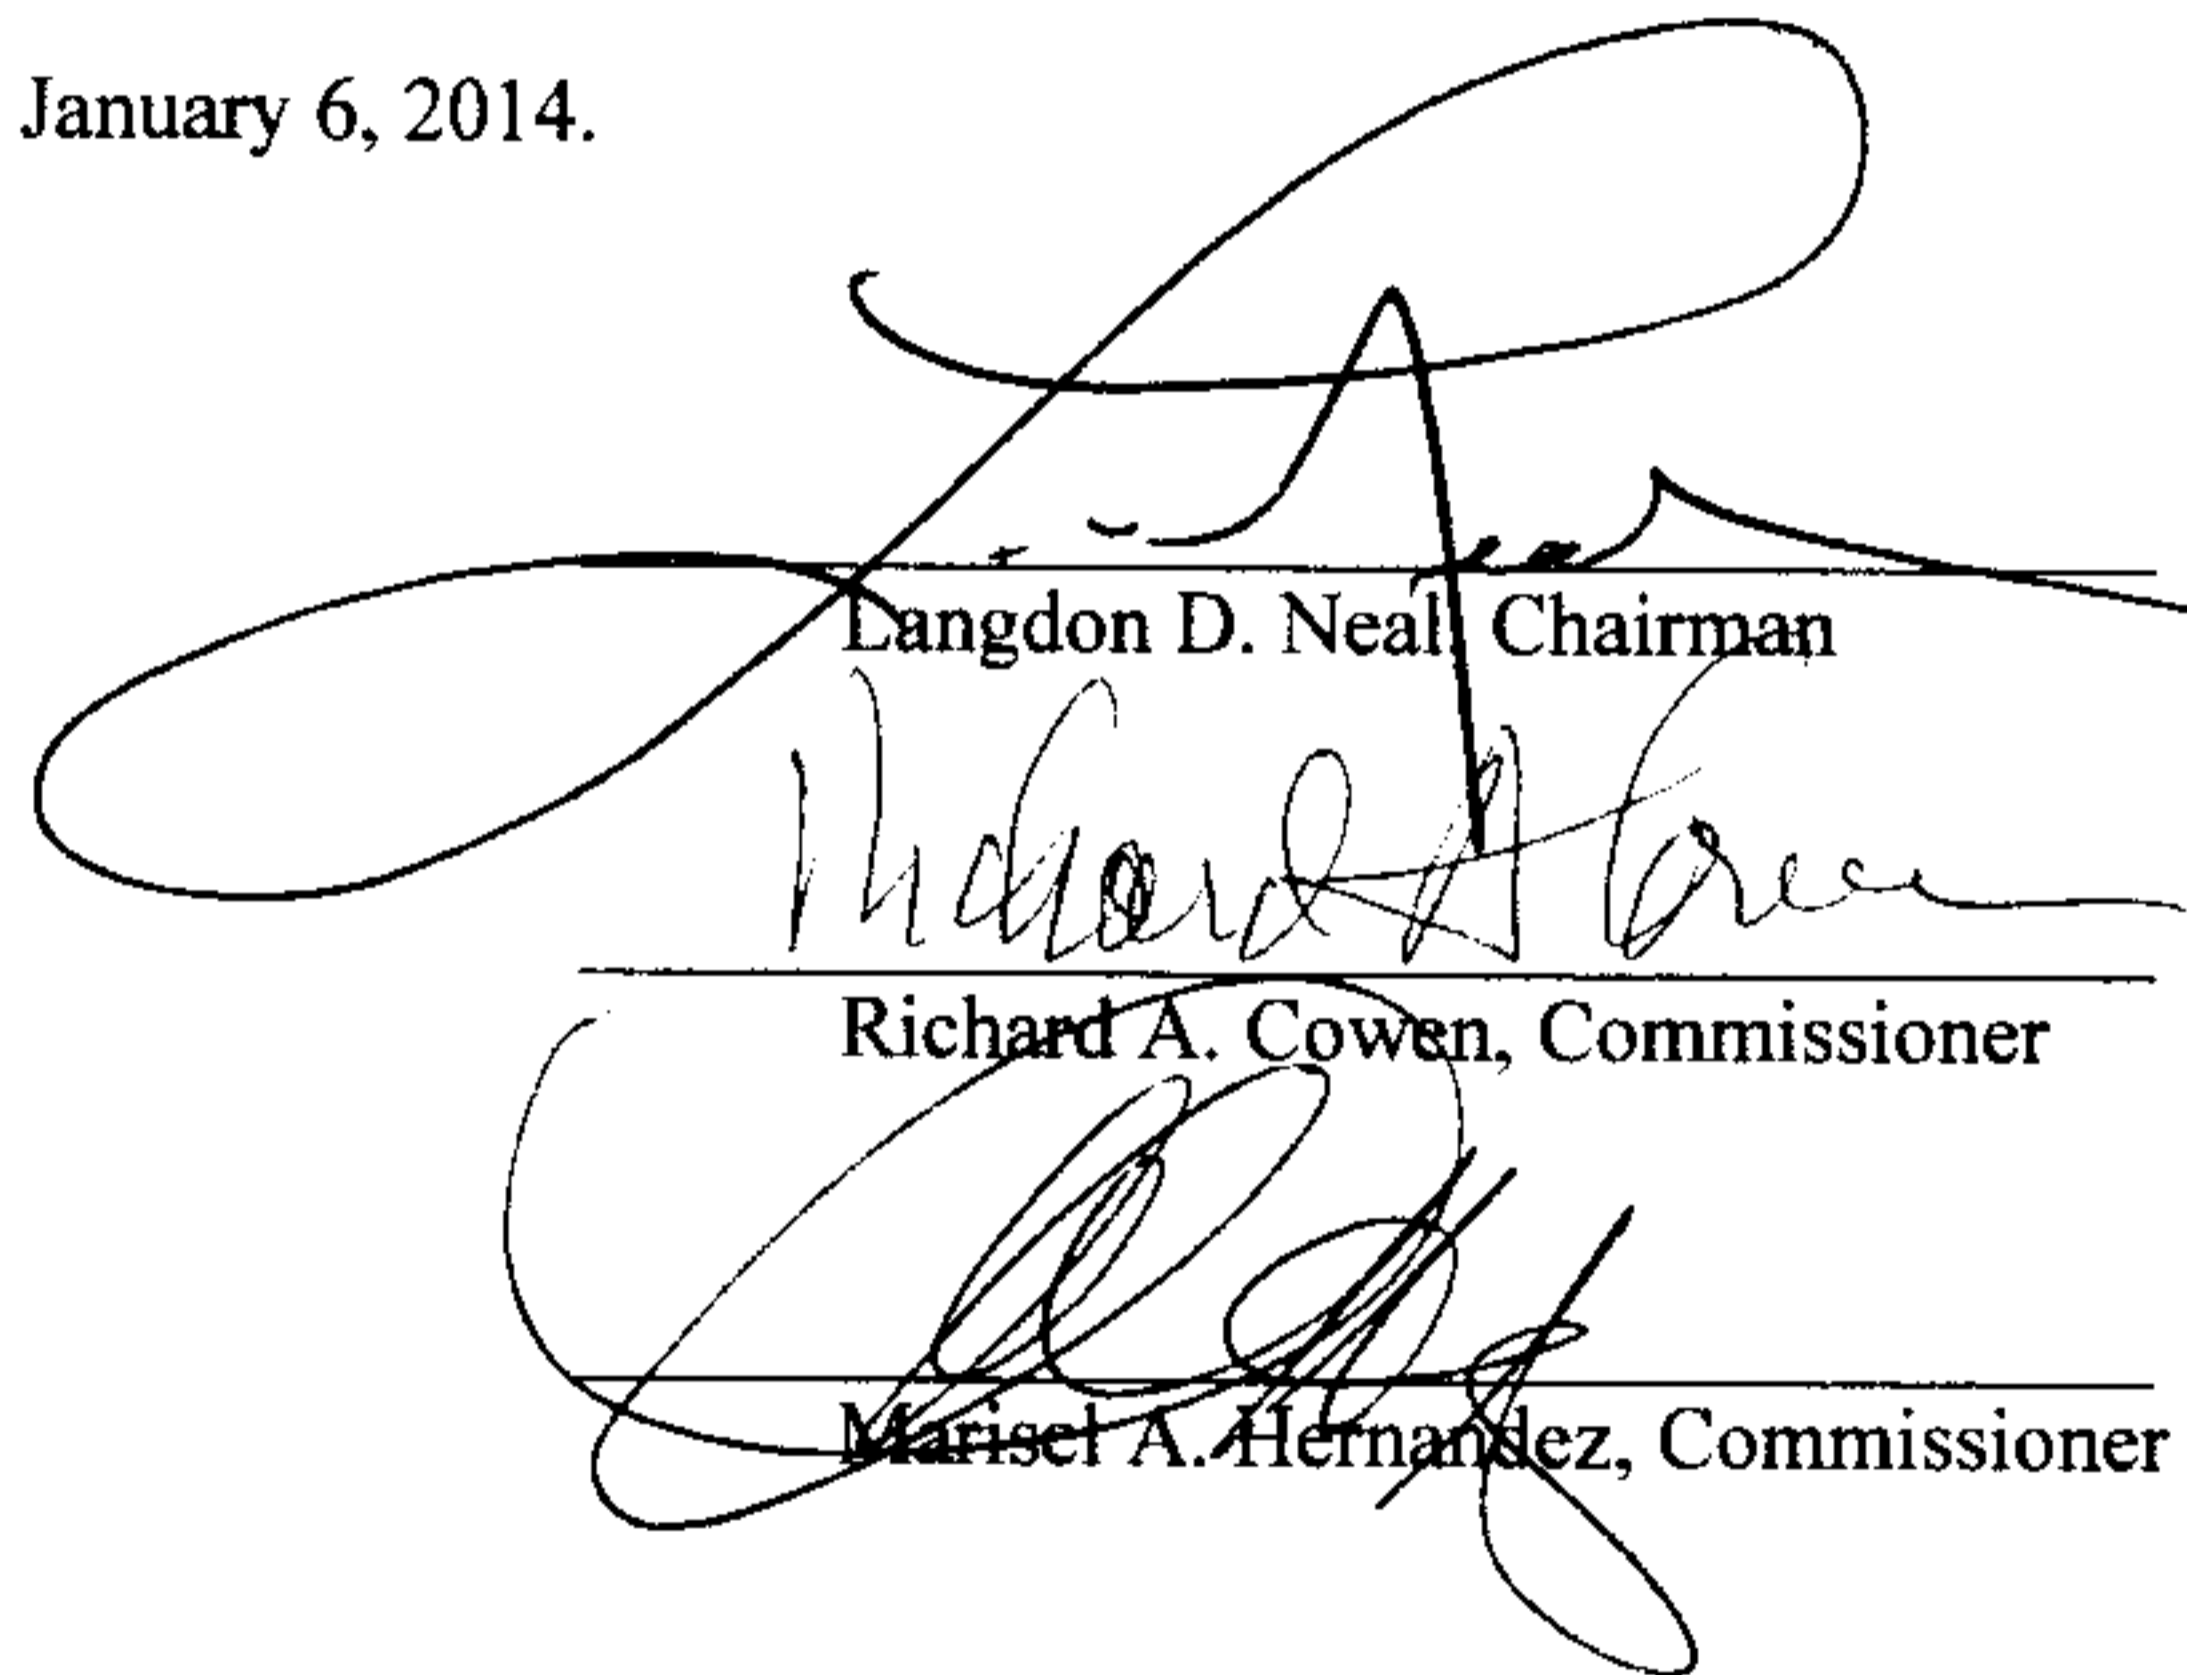 January 6, 2014.
Langdon D. Neal, Chairman
Richard A. Cowen
Richard A. Cowen, Commissioner
Marisel A. Hernandez, Commissioner